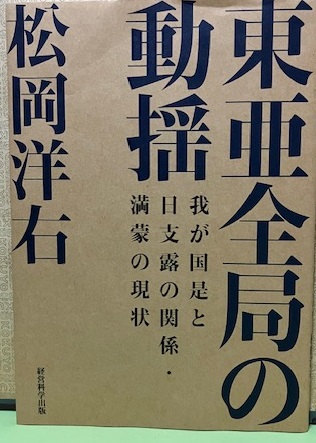 東亜全局の
動揺
我が国是と
日支露の関係・
満蒙の現状
松岡洋右
経営科学出版